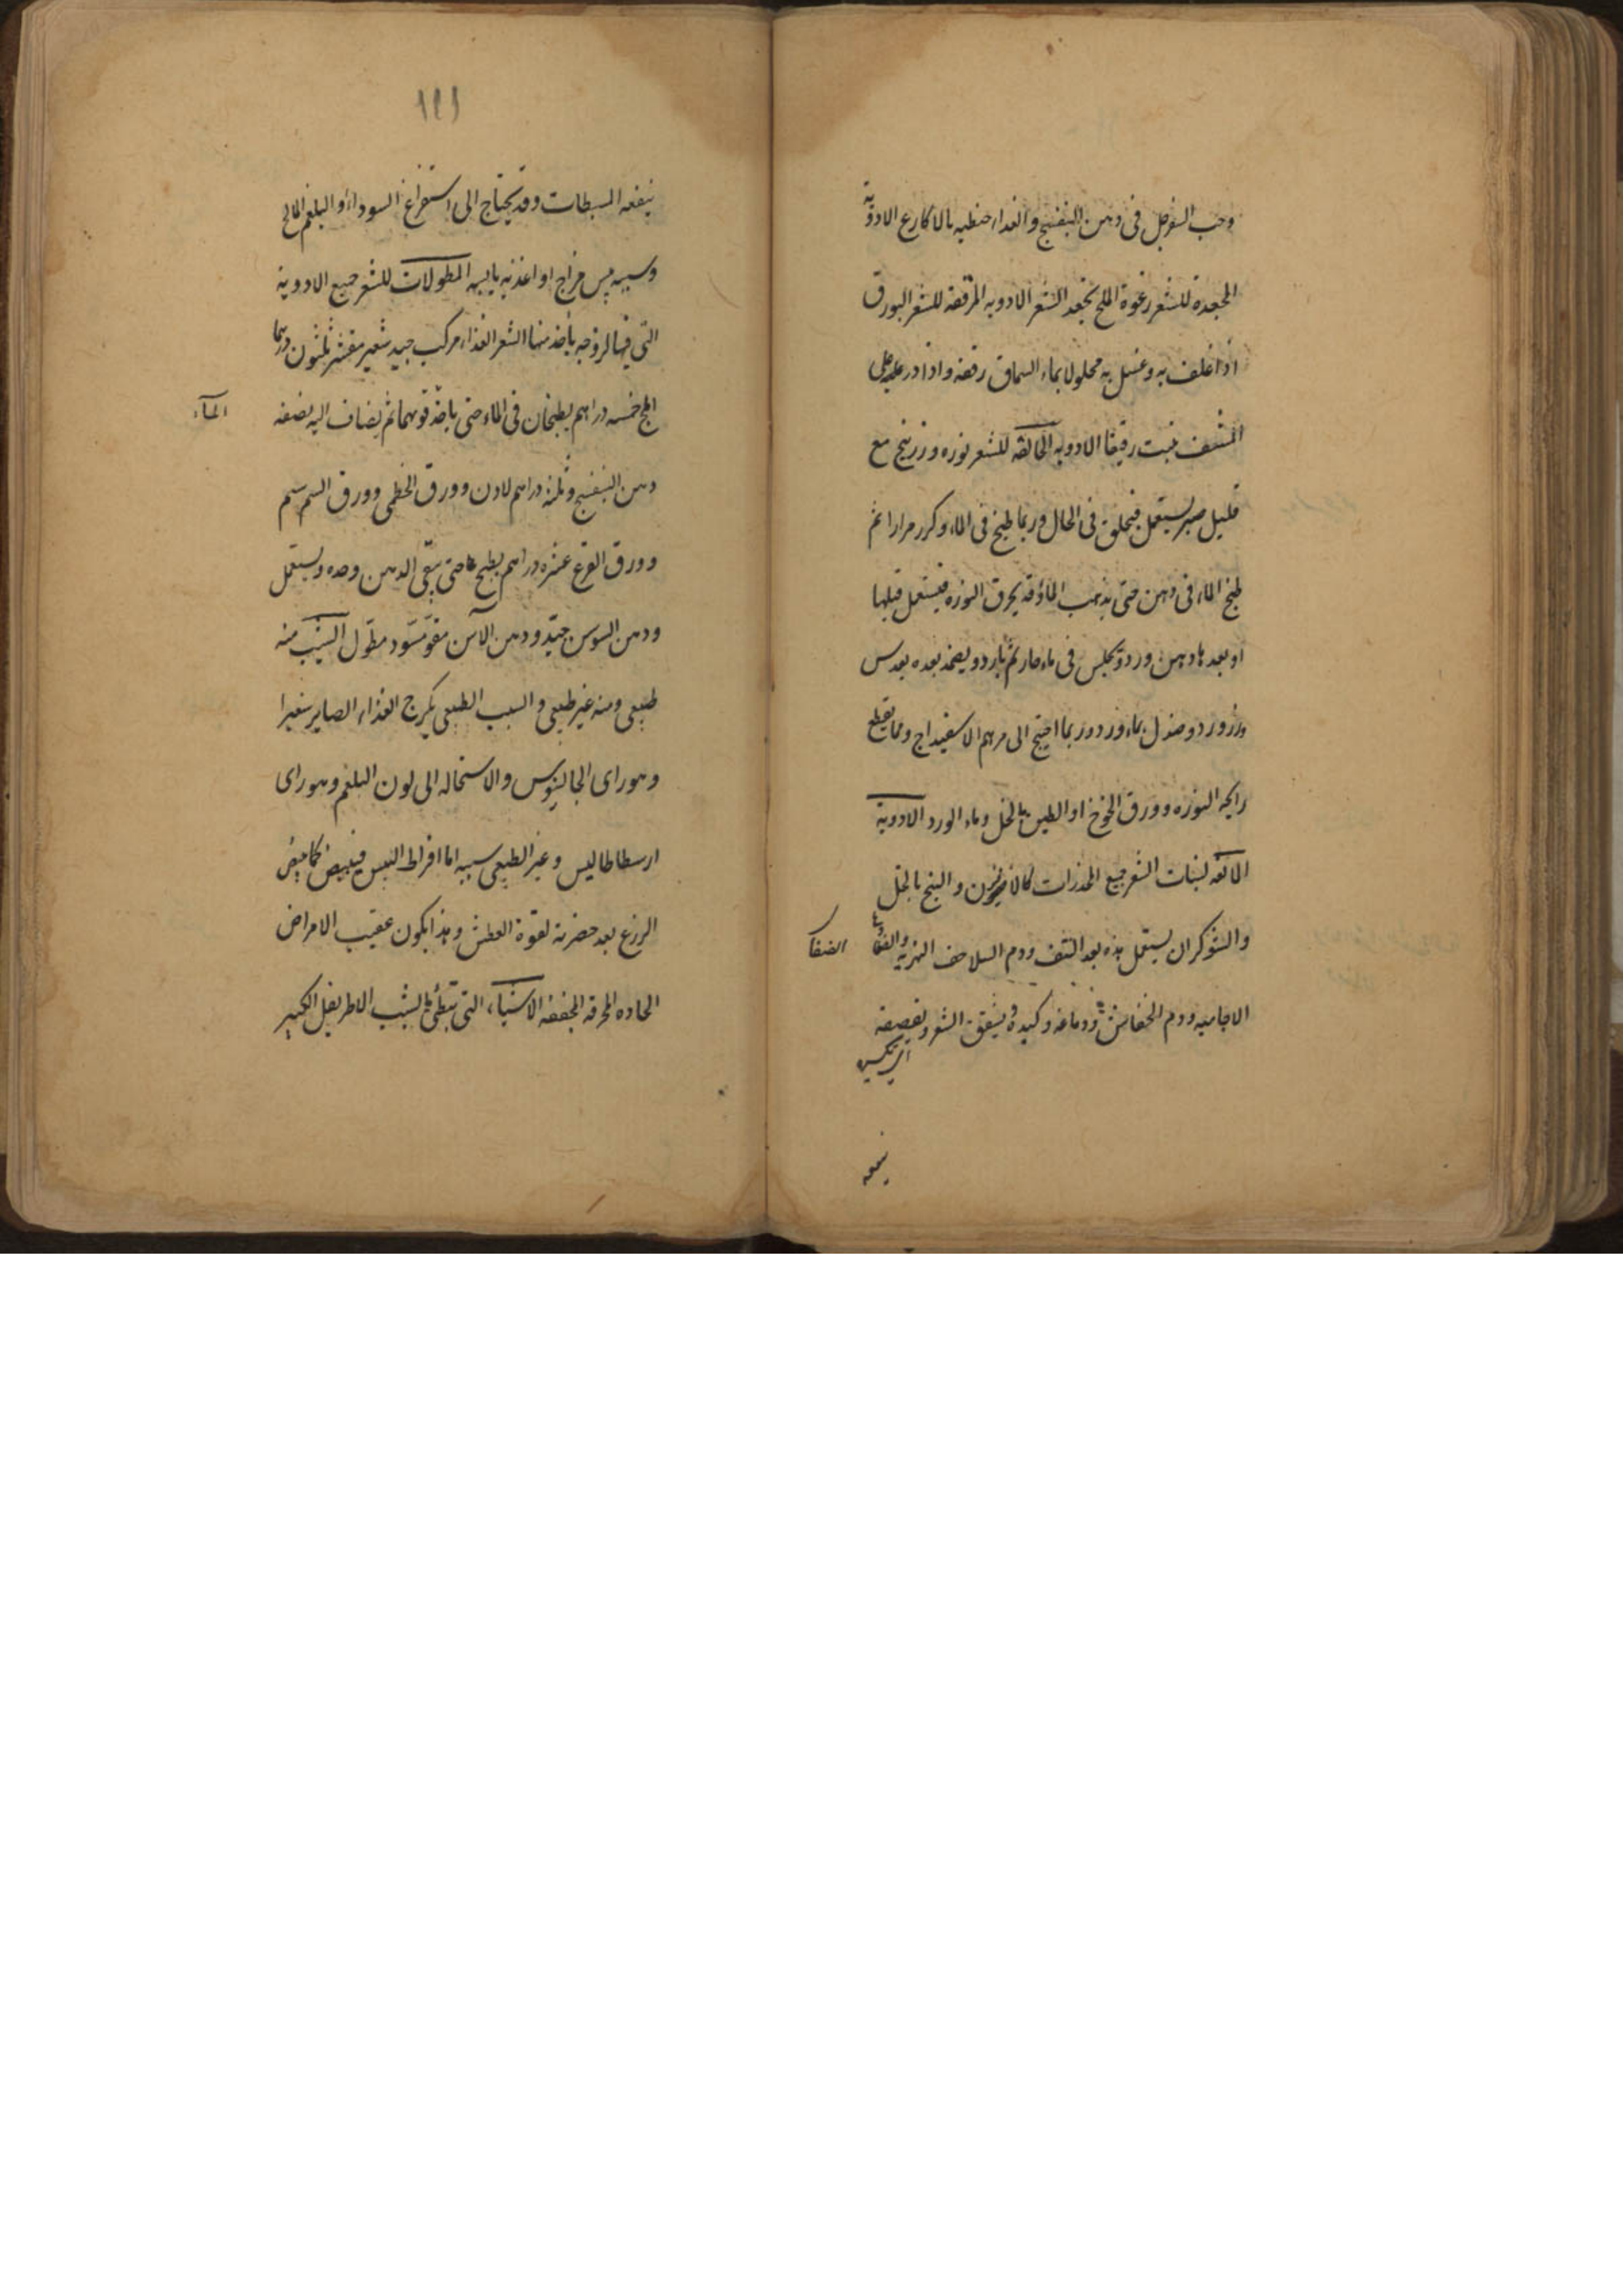 وحب السفرجل فى دهن البنفسج والغداء حنطيه بالاكارع الادوية
المجعدة للشعر رغوة الملح يجعد الشعر الادويه المرققه للشعر البورق
اذا غلف به وغسل به محلولا بماء السماق رققه واذا ذر عليه على
المنتف نبت رقيقا الادويه الحالقه للشعر نوره وزرنيخ مع
قليل صبر يستعمل فيحلق فى الحال وربما طبخ فى الماء وكرر مرارا ثم
طبخ الماء فى دهن حتى يذهب الماؤ وقد يحرق النوره فيستعمل قبلها
او بعدها دهن ورد ويجلس فى ماء حار ثم بارد ويضمد بعده بعدس
ورد وصندل بماء ورد وربما احتيج الى مرهم الاسفيداج ومما يقطع
رايحه النوره وورق الخوخ او الطين بالخل وماء الورد الادوية
المانعه لنبات الشعر جميع المخدرات كالافيون والبنج بالخل
والشوكران يستعمل هذه بعد النتف ودم السلاحف النهريه
الضفا
الاجاميه ودم الخفاش ودماغه وكبده تشقق الشعر وتقصفه
ينفعه
١٤١
ينفعه المسبطات وقد يحتاج الى استفراغ السوداء او البلغم المالح
وسببه يبس مزاج او اغذيه يابسه المطولات للشعر جميع الادوية
التى فيها لزوجه يأخذ منها الشعر الغذاء مركب جيد شعير مقشر ثلثون درهما
املج خمسه دراهم يطبخان فى الماء حتى ياخذ قوتهما ثم يضاف اليه نصفه
المآء
دهن البنفسج وثلثة دراهم لادن وورق الخطمى وورق السمسم
وورق القرع عشره دراهم يطبخ حتى يبقى الدهن وحده ويستعمل
ودهن السوسن جيد ودهن الآس مقو مسود مطول الشيب منه
طبيعى ومنه غير طبيعى والسبب الطبيعى تكرج الغذاء الصاير شعرا
وهو راى الجالينوس والاستحاله الى لون البلغم وهو راى
ارسطاطاليس وغير الطبيعى سببه اما افراط اليبس فيبيض كما يبيض
الزرع بعد خضرته لقوة العطش وهذا يكون عقيب الامراض
الحاده المحرقه المجففه الاشياء التى تبطئ بالشيب الاطريفل الكبير